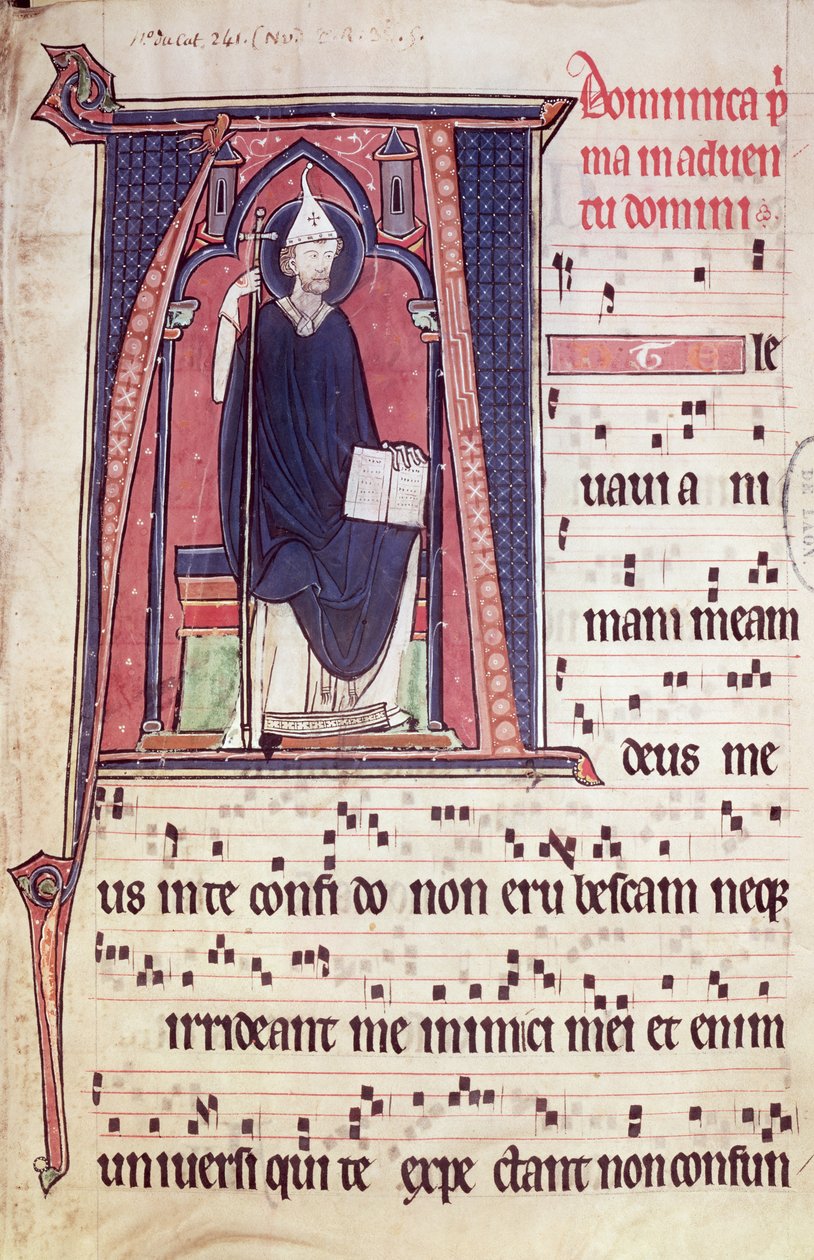 No du Cat. 241.
Dominica p̄i
ma in aduen
tu domini
D TE le
uaui a ni
mam meam
deus me
us in te confi do non eru bescam neqꝫ
irrideant me inimici mei et enim
uniuersi qui te expe ctant non confun
DE LAON